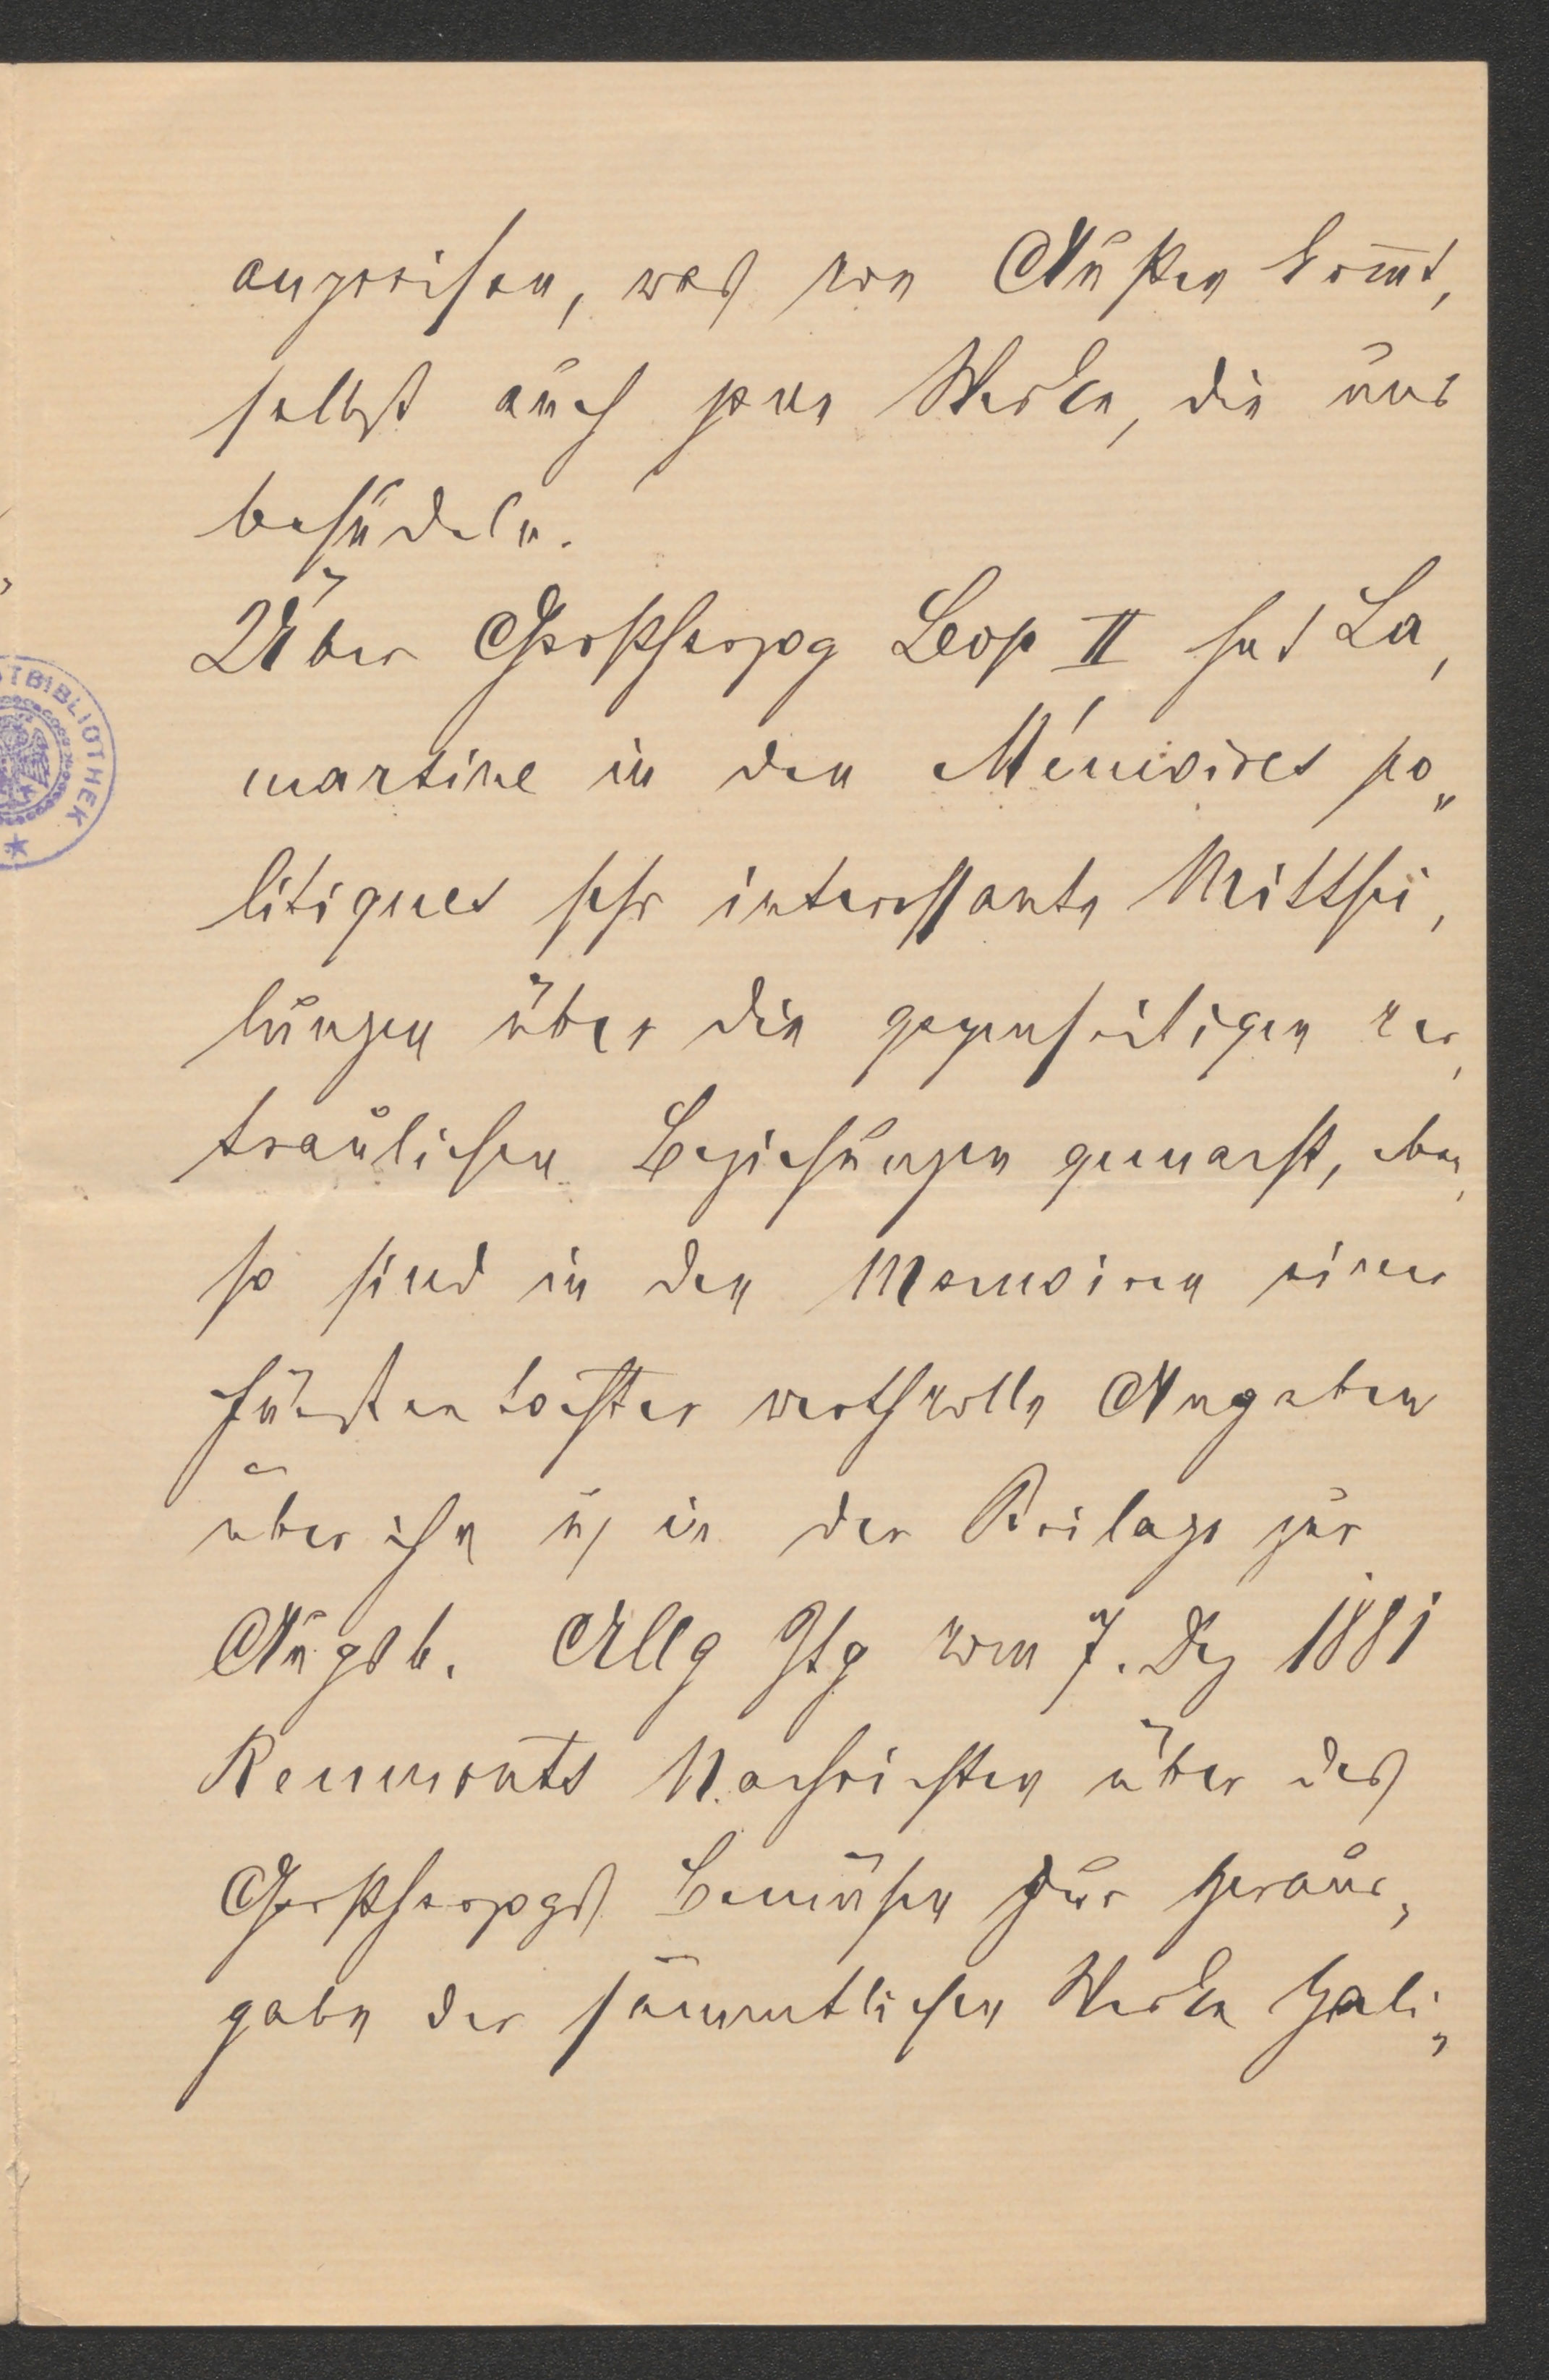 anpreisen, was von Außen kom̅t,
selbst auch jene Werke, die uns
besudeln.
Über Großherzog Leop II hat La,
martine in den Mémoires po„
litiques sehr interessante Mitthei,
lungen über die gegenseitigen ver,
traulichen Beziehungen gemacht, eben,
so sind in den Memoiren einer
Fürstentochter werthvolle Angaben
über ihn u in der Beilage zur
Augsb. Allg Ztg vom 7. Dez 1881
Reumonts Nachrichten über des
Großherzogs Bemühen zur Heraus,
gabe der sämmtlichen Werke Gali„
TBIBLIOTHEK